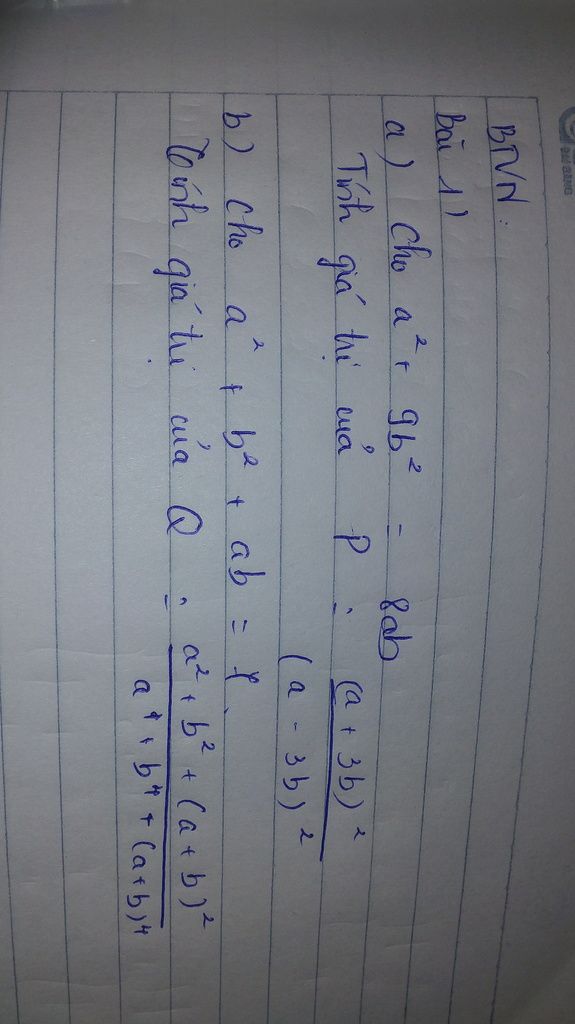 BTVN:
Bài 1)
a) Cho a² + 9b² = 8ab
Tính giá trị của P = (a + 3b)² / (a - 3b)²
b) Cho a² + b² + ab = 1
Tính giá trị của Q = a² + b² + (a + b)² / a⁴ + b⁴ + (a+b)⁴